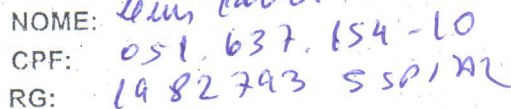 NOME:
CPF: 051.637.154-10
RG: 1982793 SSP/AL